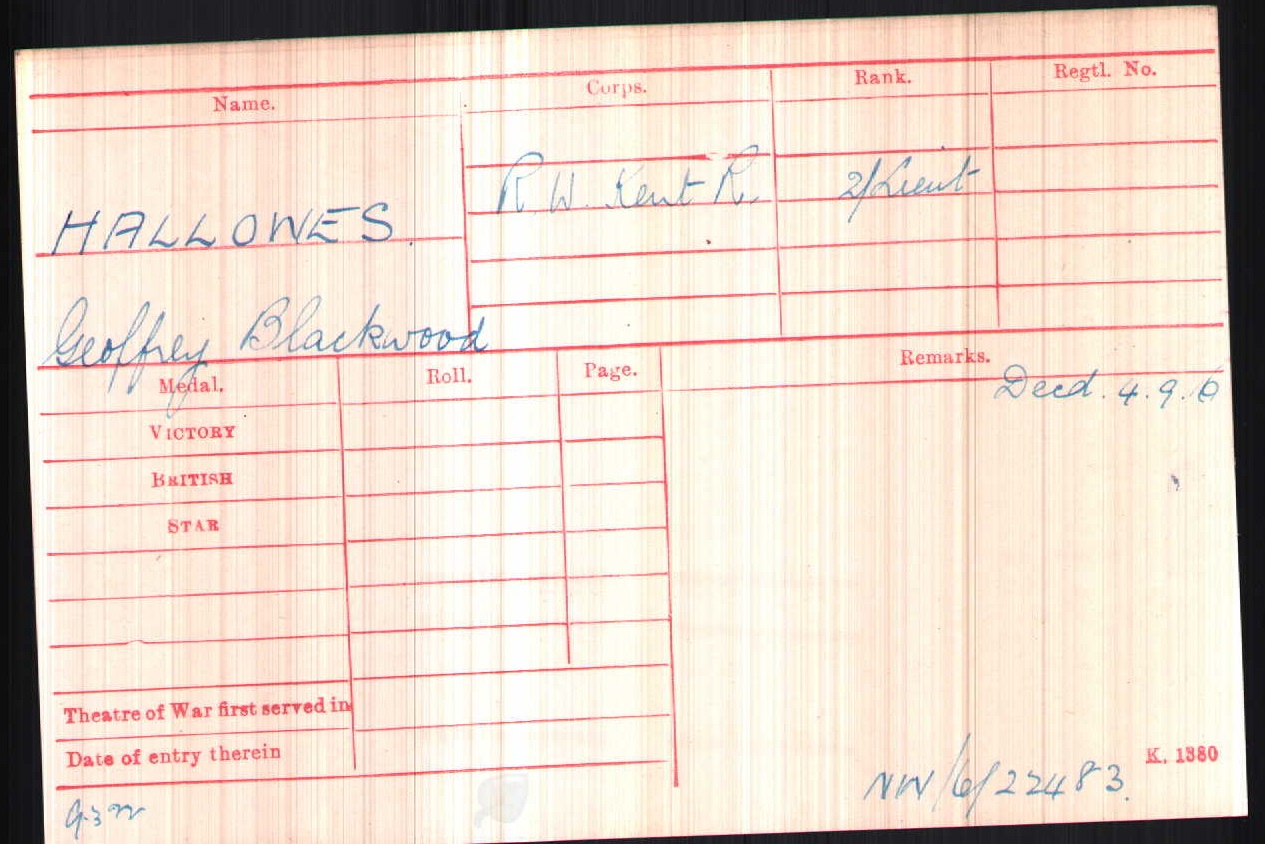 Name. Corps. Rank. Regtl. No.
HALLOWES. R. W. Kent R. 2/Lieut
Geoffrey Blackwood
Medal. Roll. Page. Remarks.
Decd. 4.9.16
VICTORY
BRITISH
STAR
Theatre of War first served in
Date of entry therein
K. 1380
NW/6/22483.